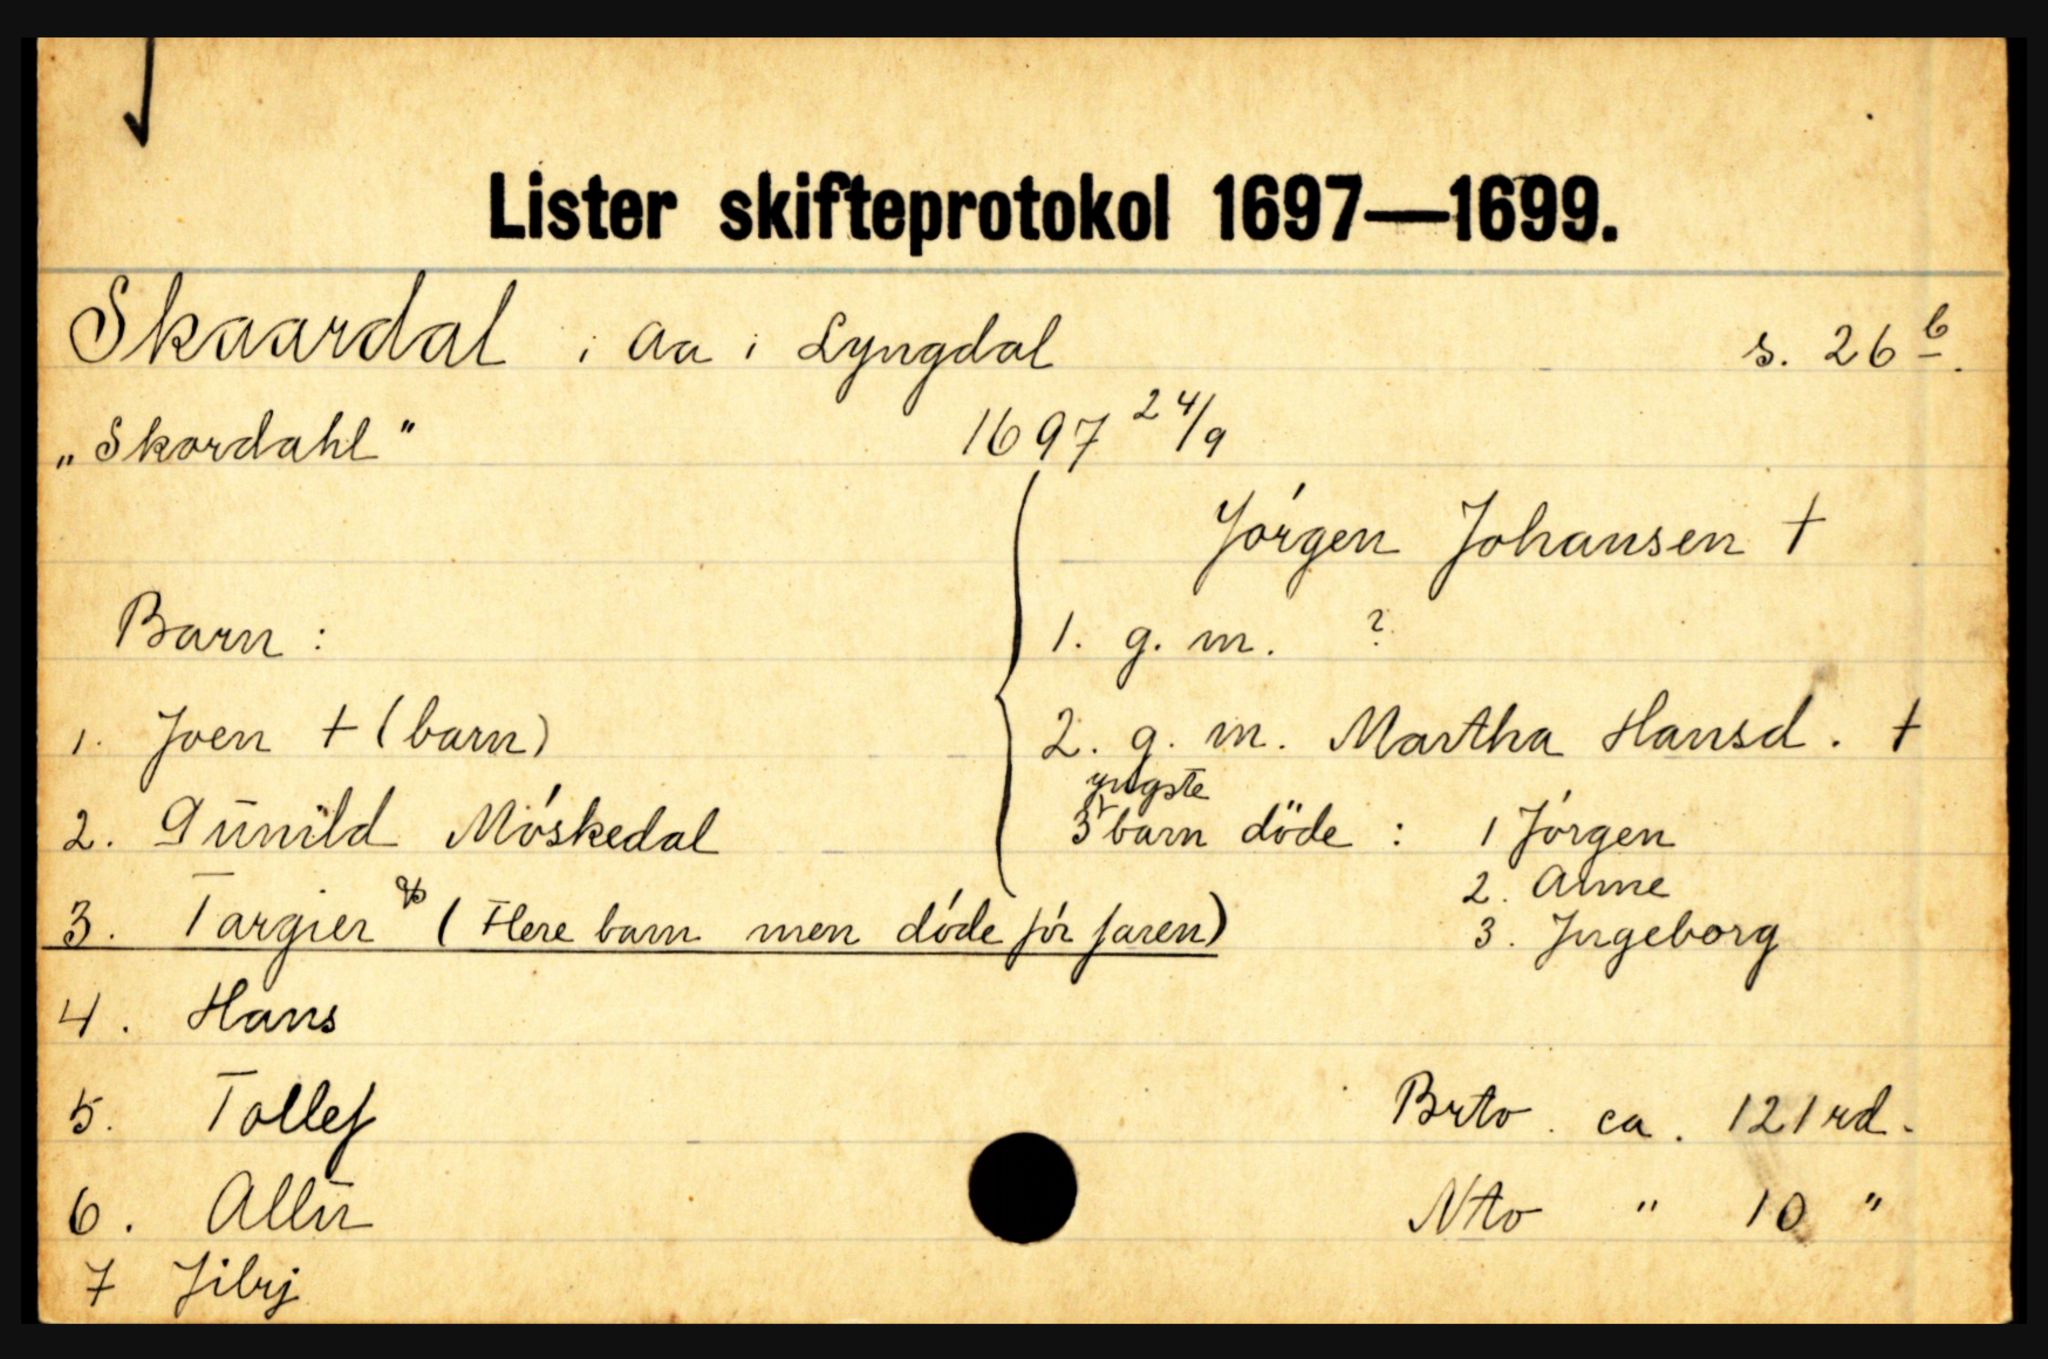 Lister skifteprotokol 1697—1699.
Skaardal i Aa i Lyngdal s. 26 b.
„Skordahl" 1697 24/9
Jórgen Johansen †
Barn : 1. g. m. ?
1. Joen † (barn) 2. g. m. Martha Hansd. †
yngste
2. Gunild Móskedal 3 barn döde : 1 Jórgen
2. Anne
3. Targier (Flere barn men dóde fór faren) 3. Ingeborg
4. Hans
5. Tollef Brto. ca. 121 rd.
6. Nto " 10 "
7